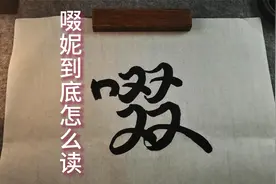 啜妮到底怎么读
啜